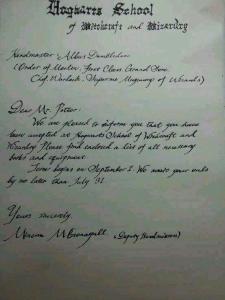 Hogwarts School
of Witchcraft and Wizardry
Headmaster: Albus Dumbledore
(Order of Merlin, First Class, Grand Sorc.
Chf. Warlock, Supreme Mugwump of Wizards)
Dear Mr. Potter,
We are pleased to inform you that you have
been accepted at Hogwarts School of Witchcraft and
Wizardry. Please find enclosed a list of all necessary
books and equipment.
Term begins on September 1. We await your owls
by no later than July 31.
Yours sincerely,
Minerva McGonagall (Deputy Headmistress)